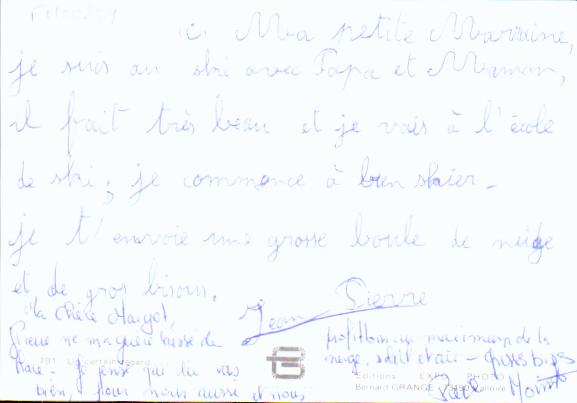 Ma petite Marraine,
je suis au ski avec Papa et Maman,
il fait très beau et je vais à l'école
de ski, je commence à bien skier -
je t'envoie une grosse boule de neige
et de gros bisous.
Jean Pierre
Ma Chère Margot,
Pierre ne m'a guère laissé de
place - Je pense que tu vas
bien, pour nous aussi et nous
profitons au maximum de la
neige, soleil et air - Grosses bises
791 Un certain regard
Editions EXPO PHOTO
Bernard GRANGE - 73450 Valloire